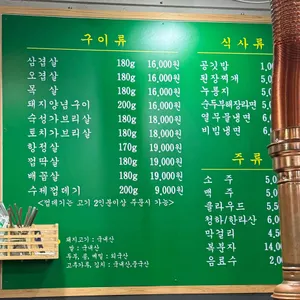 구이류
삼겹살 180g 16,000원
오겹살 180g 16,000원
목살 180g 16,000원
돼지양념구이 200g 16,000원
숙성가브리살 180g 18,000원
토치가브리살 180g 18,000원
항정살 170g 19,000원
껍딱살 180g 19,000원
배꼽살 180g 19,000원
수제껍데기 200g 9,000원
<껍데기는 고기 2인분이상 주문시 가능>
돼지고기 : 국내산
쌀 : 국내산
두부, 콩, 메밀 : 외국산
고추가루, 김치 : 국내산,중국산
식사류
공깃밥 1,0
된장찌개 5,0
누룽지 3,0
순두부해장라면 5,0
열무물냉면 6,0
비빔냉면 6,0
주류
소주 5,0
맥주 5,0
클라우드 5,0
청하/한라산 6,0
막걸리 4,0
복분자 14,0
음료수 2,0